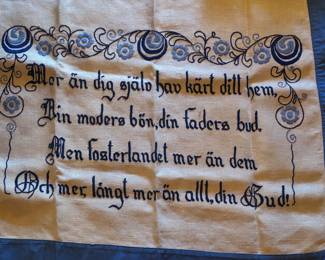 Mer än dig själv hav kärt ditt hem,
Din moders bön, din faders bud.
Men fosterlandet mer än dem
Och mer, långt mer än allt, din Gud!